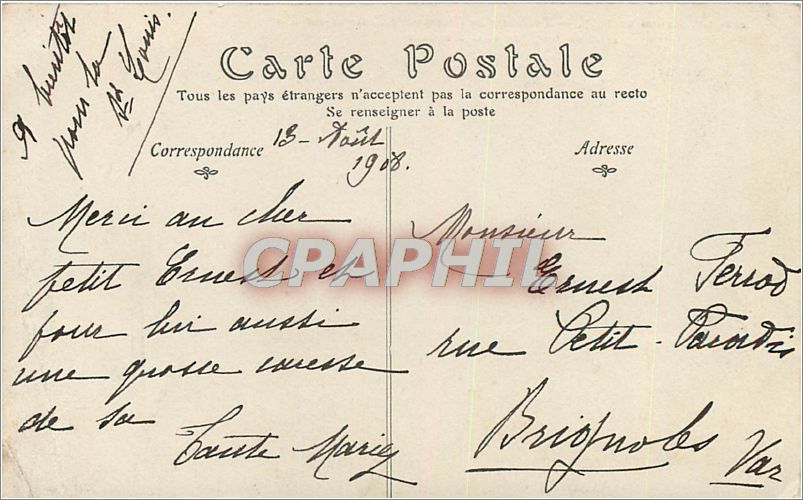 A bientôt
pour la
St Louis.
Carte Postale
Tous les pays étrangers n'acceptent pas la correspondance au recto
Se renseigner à la poste
Correspondance
13 - Août
1908.
Adresse
Merci au cher
petit Ernest et
pour lui aussi
une grosse caresse
de sa
Tante Marie
CPAPHIL
Monsieur
Ernest Ferrod
rue Petit-Paradis
Brignoles
Var